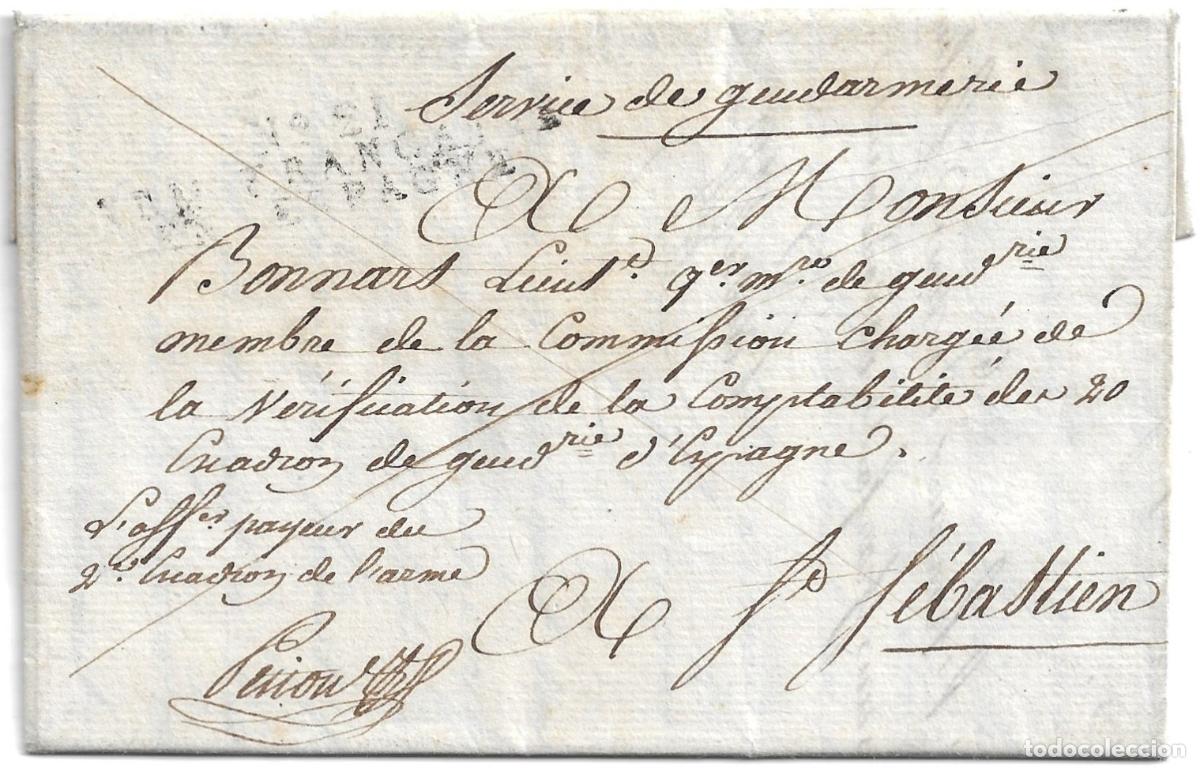 Service de gendarmerie
No 21
ARM FRANCAISE
EN ESPAGNE
A Monsieur
Bonnart Lieut.t qer. mre. de gendrie
membre de la Commission chargée de
la Vérification de la Comptabilité des 20
Escadron de gendrie d'Espagne.
L'offer payeur du
2e. Escadron de l'arme
A St Sébastien
todocoleccion